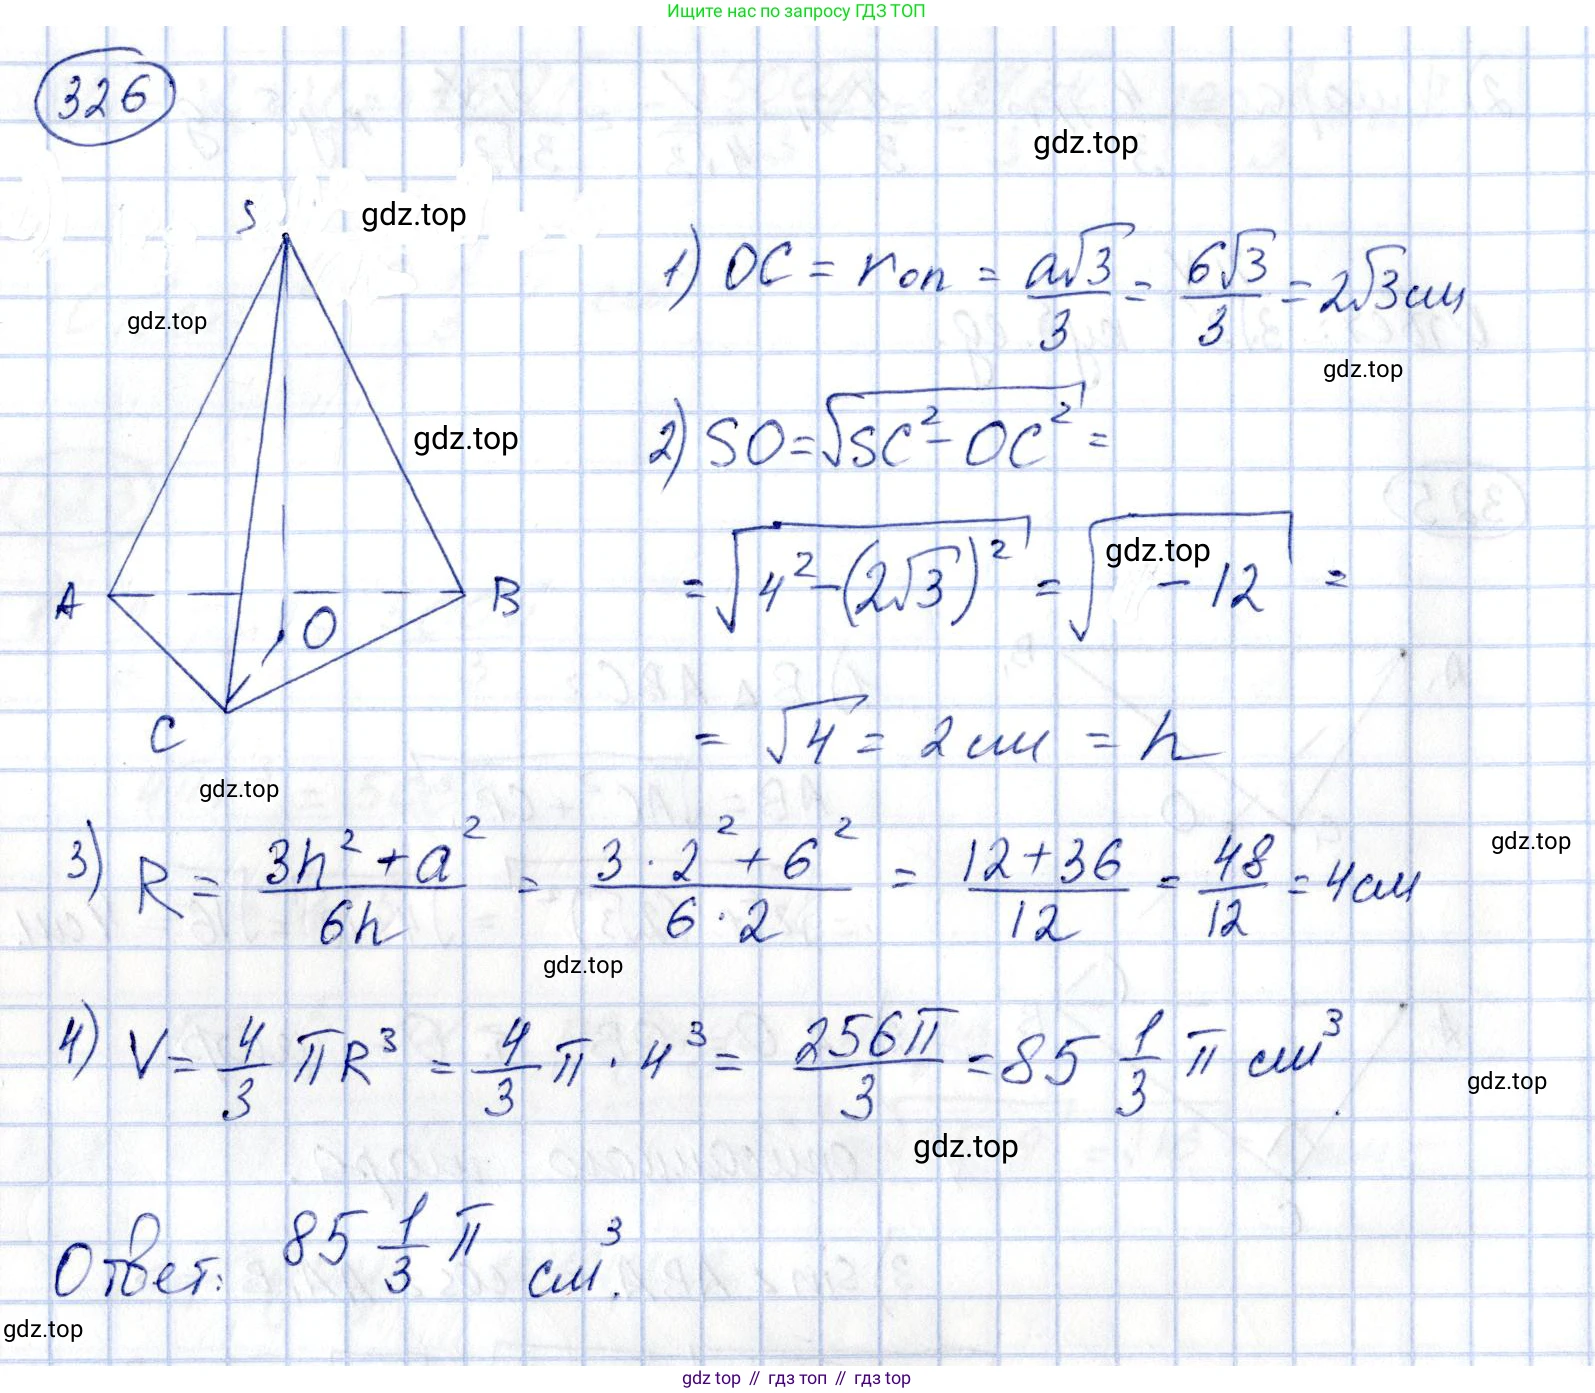 Ищите нас по запросу ГДЗ ТОП
326
gdz.top
S
gdz.top
gdz.top
1) OC = r оп = a√3/3 = 6√3/3 = 2√3 см
gdz.top
gdz.top
2) SO = √(SC² - OC²) =
= √(4² - (2√3)²) = √( - 12) =
gdz.top
A
B
O
C
= √4 = 2 см = h
gdz.top
3) R = (3h² + a²)/(6h) = (3 · 2² + 6²)/(6 · 2) = (12 + 36)/12 = 48/12 = 4 см
gdz.top
gdz.top
4) V = 4/3 πR³ = 4/3 π · 4³ = 256π/3 = 85 1/3 π см³.
gdz.top
gdz.top
Ответ: 85 1/3 π см³.
gdz.top
gdz.top // гдз топ // гдз top